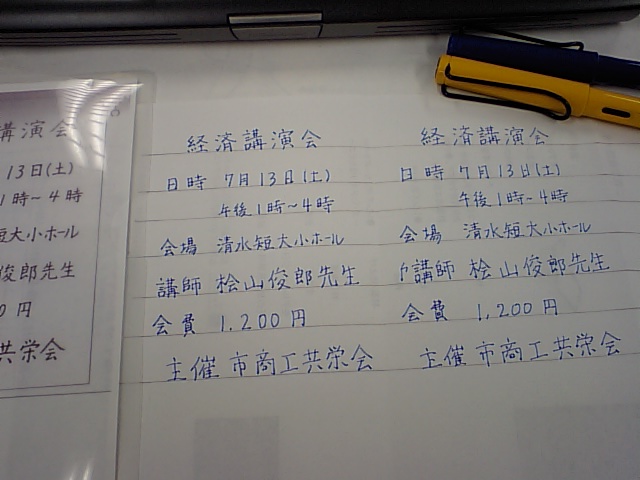 講演会
13日(土)
1時～4時
短大小ホール
俊郎先生
0円
共栄会
経済講演会
日時 7月13日(土)
午後1時～4時
会場 清水短大小ホール
講師 桧山俊郎先生
会費 1.200円
主催 市商工共栄会
経済講演会
日時 7月13日(土)
午後1時～4時
会場 清水短大小ホール
講師 桧山俊郎先生
会費 1,200円
主催 市商工共栄会